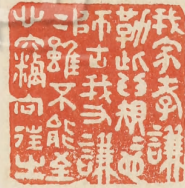 我家孝謙
勒此印規
師古我友謙
二雖不能至
心竊向往之